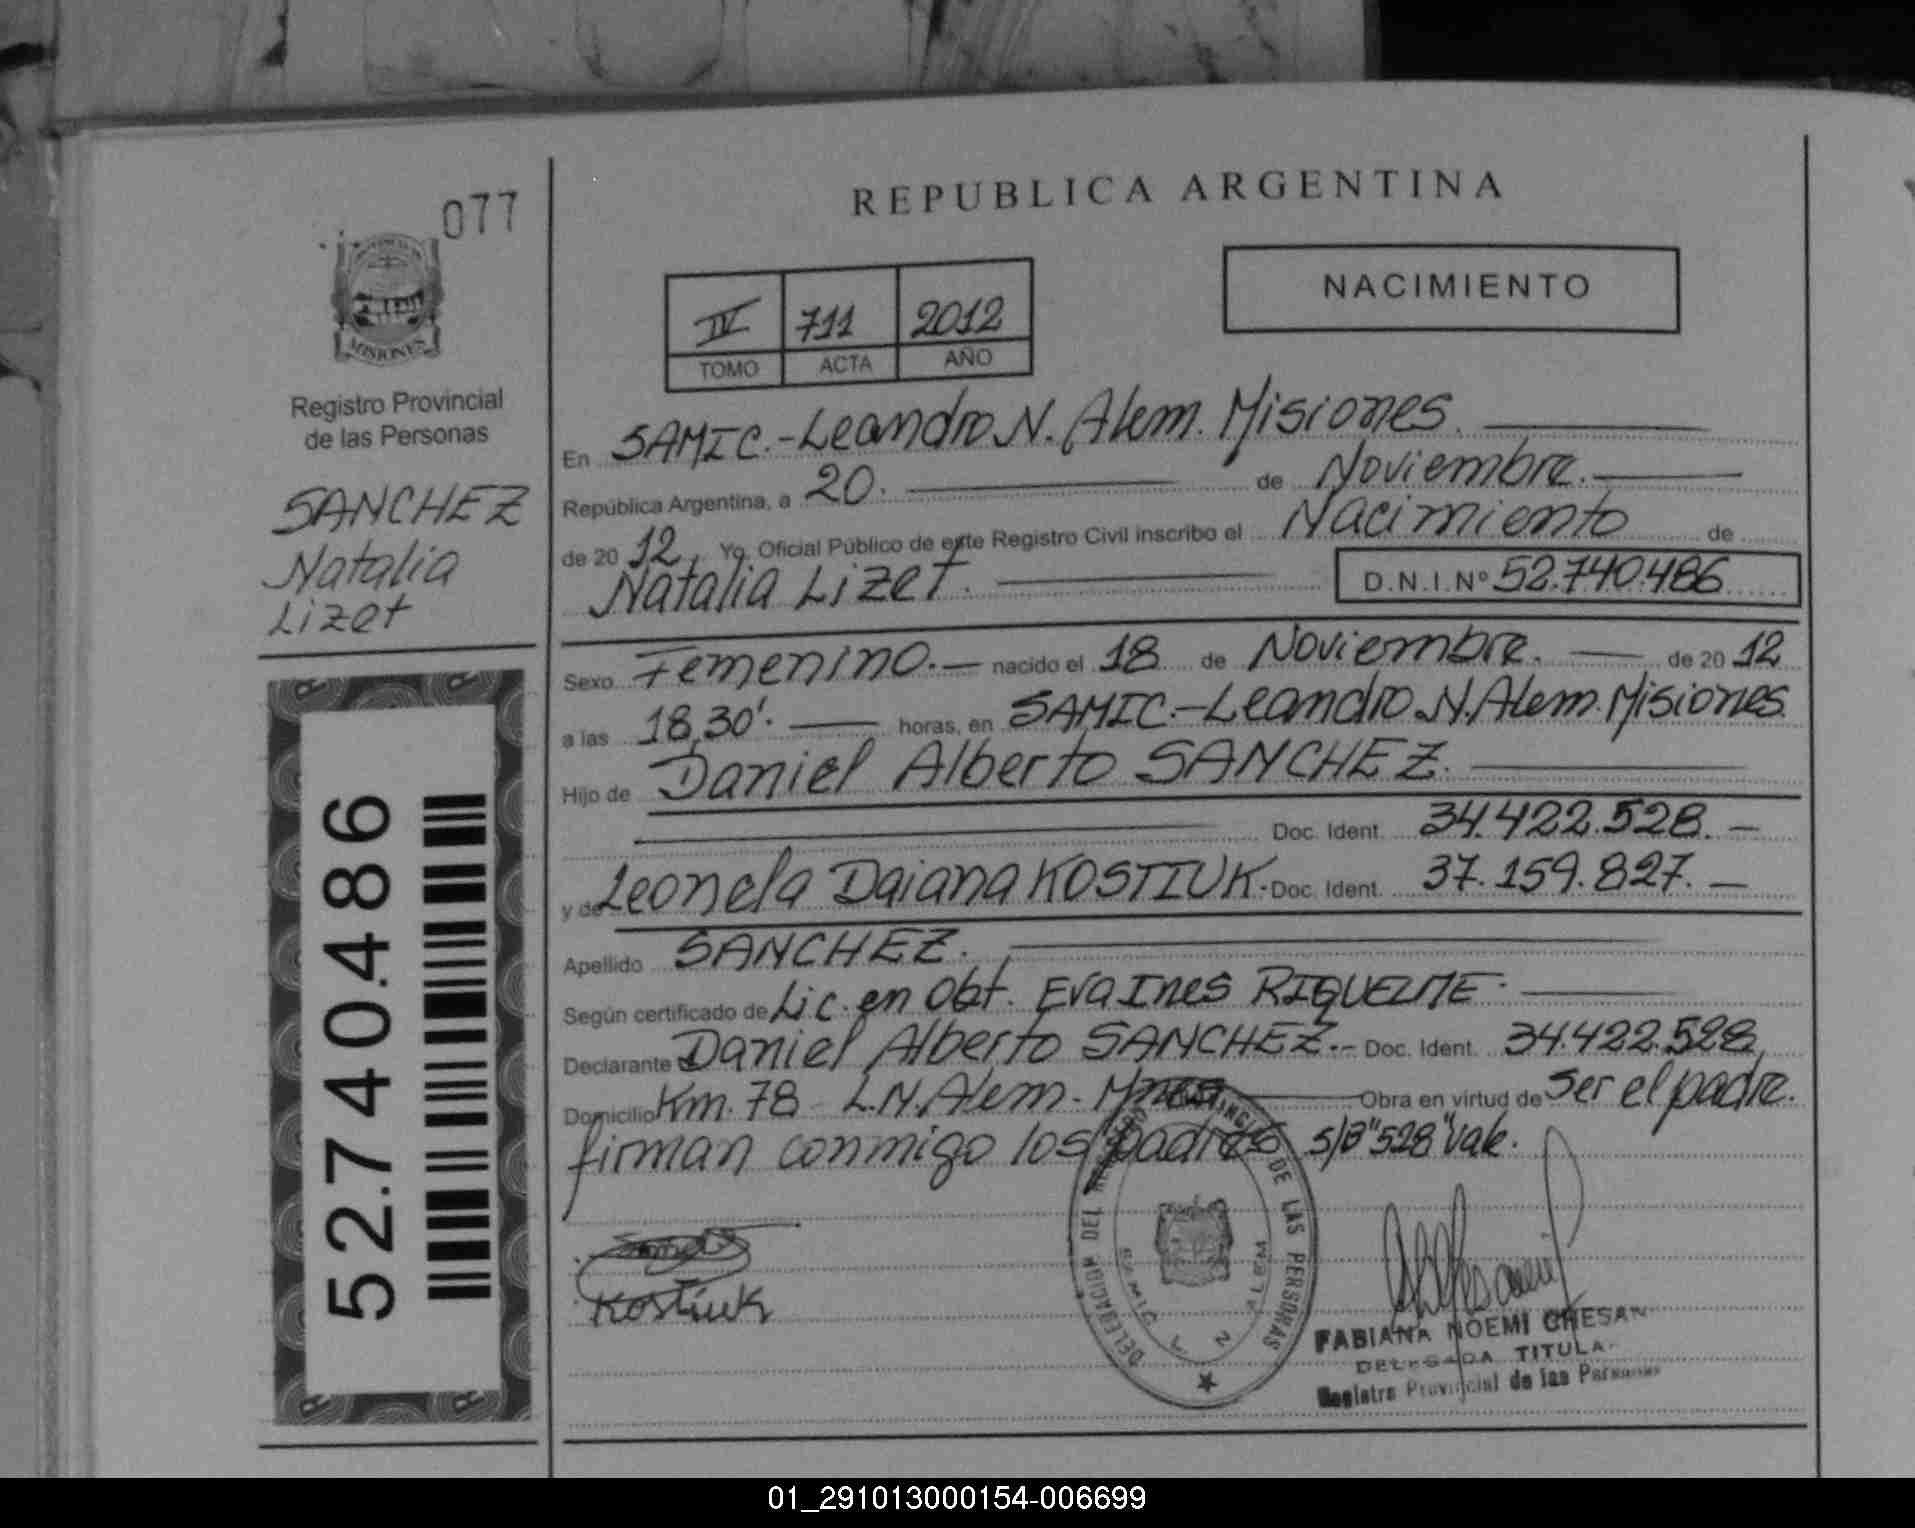 077
REPUBLICA ARGENTINA
NACIMIENTO
IV 711 2012
TOMO ACTA AÑO
MISIONES
Registro Provincial
de las Personas
SANCHEZ
Natalia
Lizet
52.740.486
En SAMIC.-Leandro N. Alem. Misiones.
República Argentina, a 20. de Noviembre.
de 20 12, Yo, Oficial Público de este Registro Civil inscribo el Nacimiento de
Natalia Lizet. D.N.I.Nº 52.740.486
Sexo Femenino.- nacido el 18 de Noviembre. de 20 12
a las 18,30'. horas, en SAMIC.-Leandro N. Alem. Misiones.
Hijo de Daniel Alberto SANCHEZ.
Doc. Ident. 34.422.528. -
y de Leonela Daiana KOSTIUK.- Doc. Ident. 37.159.827. -
Apellido SANCHEZ.
Según certificado de Lic. en Obt. Eva Ines RIQUELME.
Declarante Daniel Alberto SANCHEZ.- Doc. Ident. 34.422.528,
Domicilio Km. 78 - L.N. Alem. - Mnes Obra en virtud de Ser el padre.
firman conmigo los padres s/B "528" Vale.
Kostiuk
DELEGACION DEL REGISTRO PROVINCIAL DE LAS PERSONAS
SAMIC L N ALEM
FABIANA NOEMI CHESAN
DELEGADA TITULAR
Registro Provincial de las Personas
01_291013000154-006699